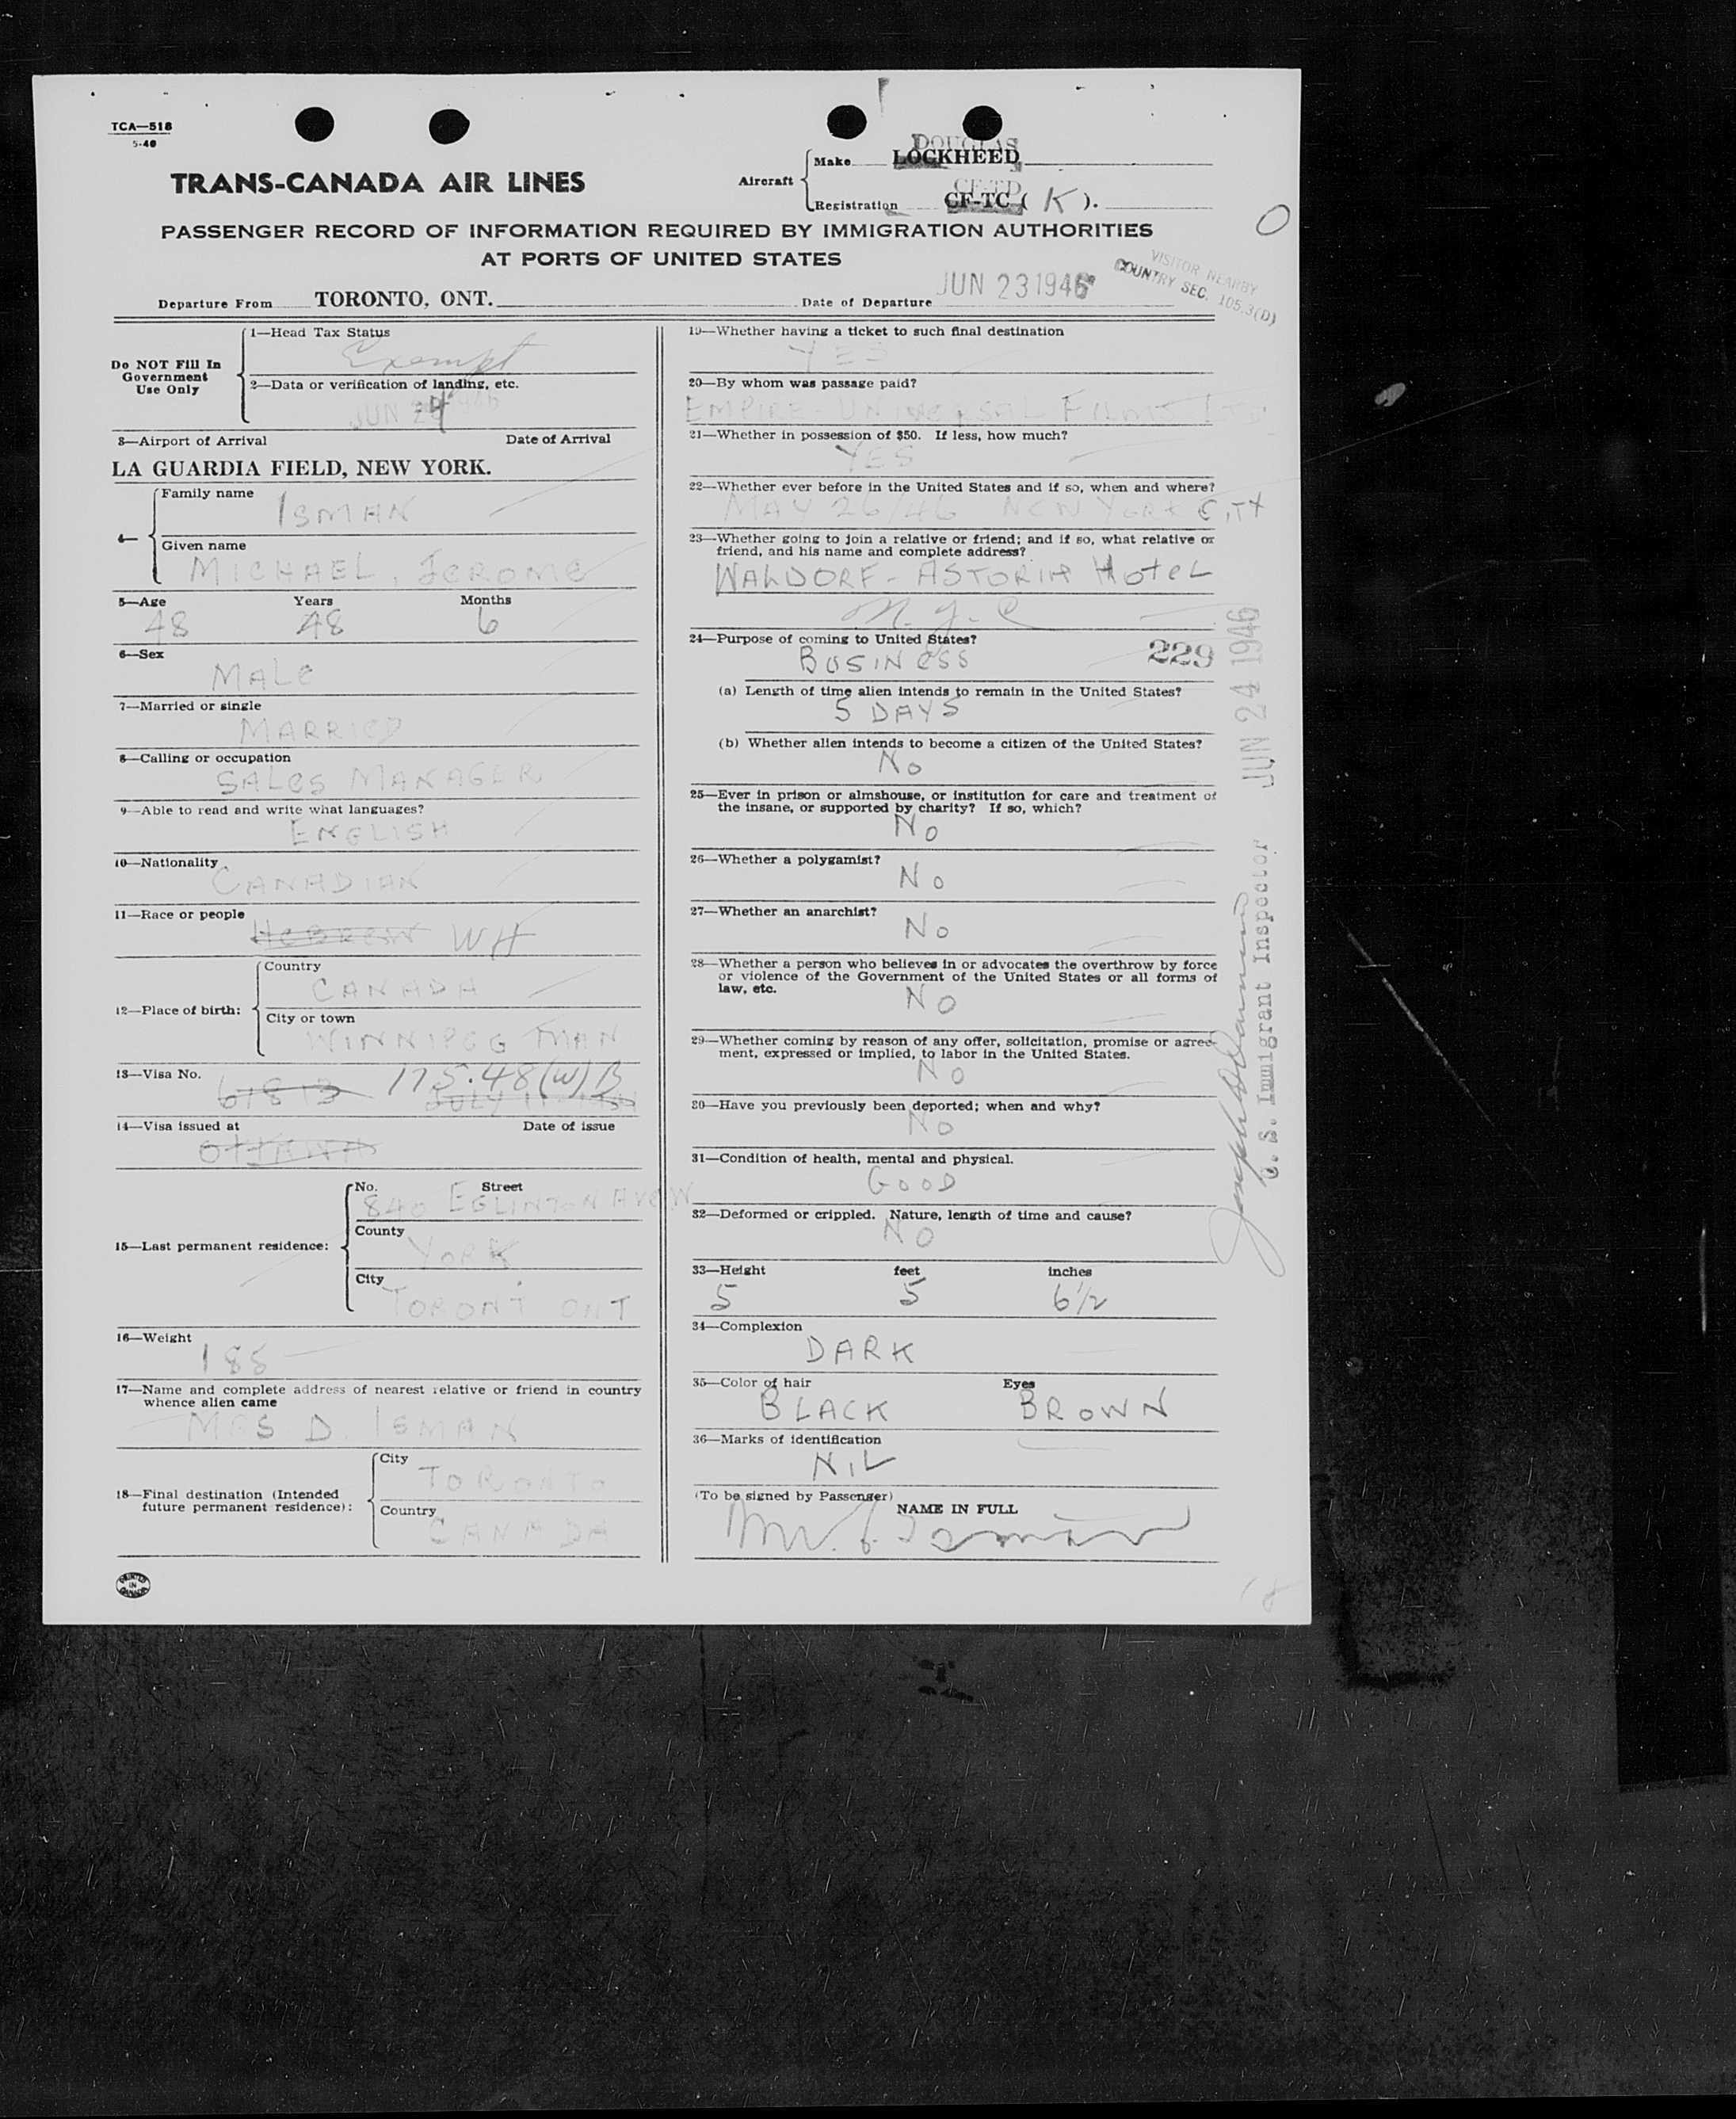 TCA—518
5-40
TRANS-CANADA AIR LINES
Aircraft
Make
DOUGLAS
LOCKHEED
Registration
CF-TD
CF-TC ( K ).
PASSENGER RECORD OF INFORMATION REQUIRED BY IMMIGRATION AUTHORITIES
AT PORTS OF UNITED STATES
VISITOR NEARBY
COUNTRY SEC. 105.3(D)
Departure From TORONTO, ONT. Date of Departure JUN 23 1946
Do NOT Fill In
Government
Use Only
1—Head Tax Status
Exempt
2—Data or verification of landing, etc.
JUN 24 1946
3—Airport of Arrival Date of Arrival
LA GUARDIA FIELD, NEW YORK.
4—
Family name
ISMAN
Given name
MICHAEL, JEROME
5—Age Years Months
48 48 6
6—Sex
MALE
7—Married or single
MARRIED
8—Calling or occupation
SALES MANAGER
9—Able to read and write what languages?
ENGLISH
10—Nationality
CANADIAN
11—Race or people
HEBREW WH
12—Place of birth:
Country
CANADA
City or town
WINNIPEG MAN
13—Visa No.
61813 175.48(W)B
JULY 11
14—Visa issued at Date of issue
OTTAWA
15—Last permanent residence:
No. Street
840 EGLINTON AVE W
County
YORK
City
TORONT ONT
16—Weight
185
17—Name and complete address of nearest relative or friend in country
whence alien came
MRS D. ISMAN
18—Final destination (Intended
future permanent residence):
City
TORONTO
Country
CANADA
PRINTED
IN
CANADA
19—Whether having a ticket to such final destination
YES
20—By whom was passage paid?
EMPIRE-UNIVERSAL FILMS LTD
21—Whether in possession of $50. If less, how much?
YES
22—Whether ever before in the United States and if so, when and where?
MAY 26/46 NEW YORK CITY
23—Whether going to join a relative or friend; and if so, what relative or
friend, and his name and complete address?
WALDORF-ASTORIA HOTEL
N.Y.C
24—Purpose of coming to United States?
BUSINESS
229
(a) Length of time alien intends to remain in the United States?
5 DAYS
(b) Whether alien intends to become a citizen of the United States?
NO
25—Ever in prison or almshouse, or institution for care and treatment of
the insane, or supported by charity? If so, which?
NO
26—Whether a polygamist?
NO
27—Whether an anarchist?
NO
28—Whether a person who believes in or advocates the overthrow by force
or violence of the Government of the United States or all forms of
law, etc.
NO
29—Whether coming by reason of any offer, solicitation, promise or agree-
ment, expressed or implied, to labor in the United States.
NO
30—Have you previously been deported; when and why?
NO
31—Condition of health, mental and physical.
GOOD
32—Deformed or crippled. Nature, length of time and cause?
NO
33—Height feet inches
5 5 6½
34—Complexion
DARK
35—Color of hair Eyes
BLACK BROWN
36—Marks of identification
NIL
(To be signed by Passenger)
NAME IN FULL
M. J. Isman
JUN 24 1946
U. S. Immigrant Inspector